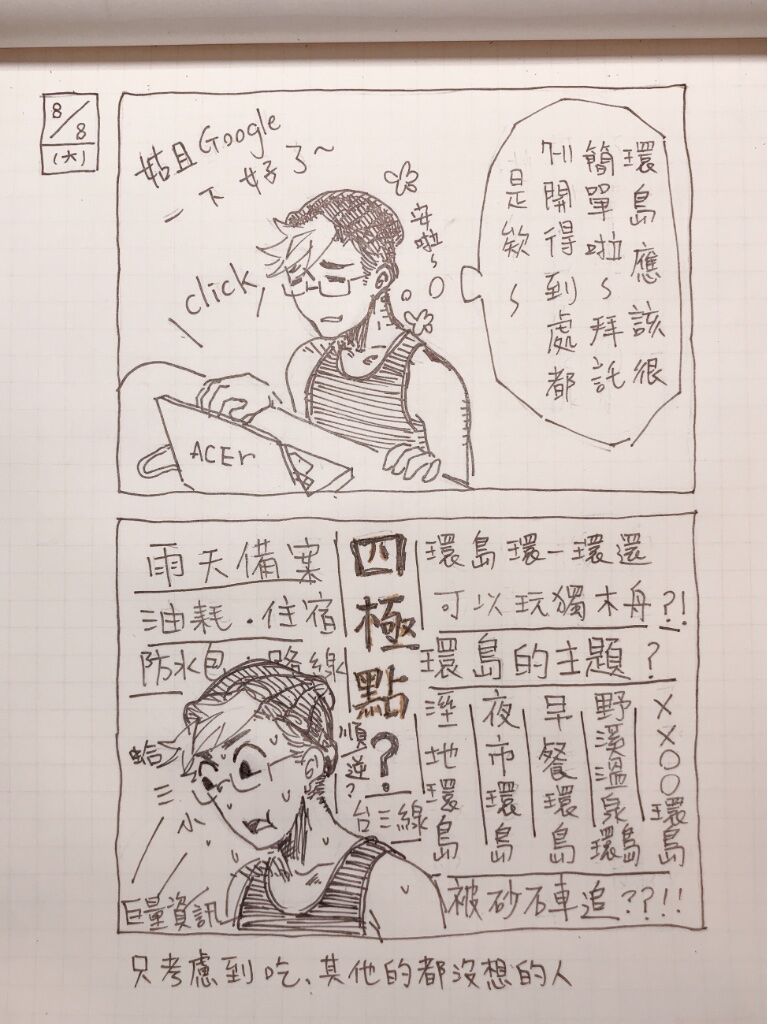 8/8
(六)
姑且Google
一下好了~
安啦~
click
ACEr
環島應該很
簡單啦~拜託
7-11開得到處都
是欸~
雨天備案
油耗．住宿
防水包．路線
四極點?
順逆?
台三線
環島環一環還
可以玩獨木舟?!
環島的主題?
溼地環島
夜市環島
早餐環島
野溪溫泉環島
XX○○環島
被砂石車追??!!
蛤三小
巨量資訊
只考慮到吃、其他的都沒想的人